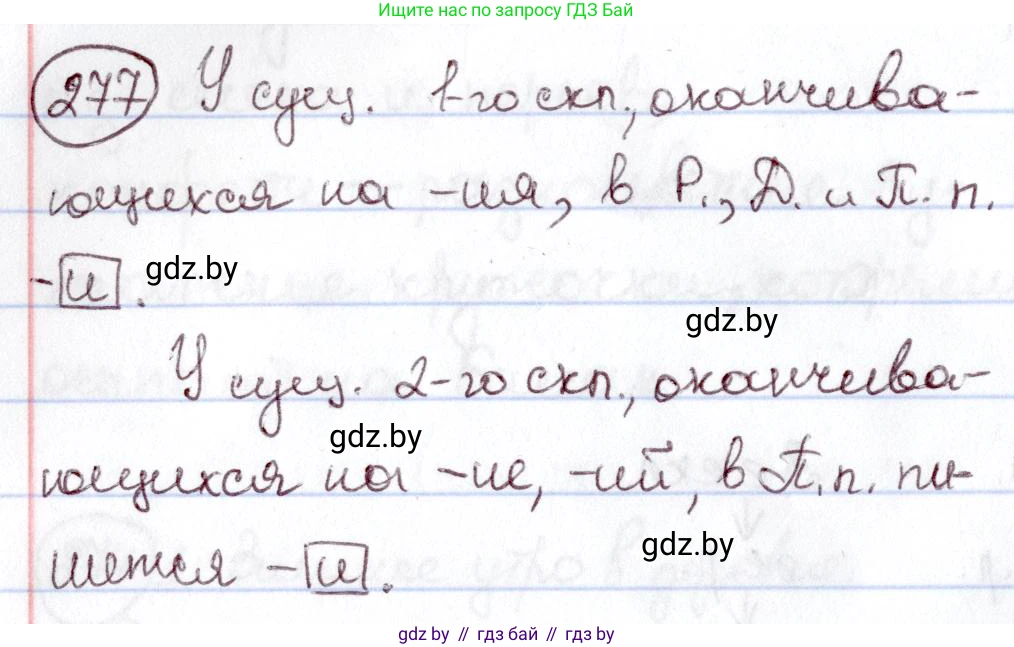 Ищите нас по запросу ГДЗ Бай
277 У сущ. 1-го скл., оканчива-
ющихся на -ия, в Р., Д. и П. п.
-и.
gdz.by
gdz.by
У сущ. 2-го скл., оканчива-
gdz.by
ющихся на -ие, -ий, в П. п. пи-
шется -и.
gdz.by
gdz.by // гдз бай // гдз by